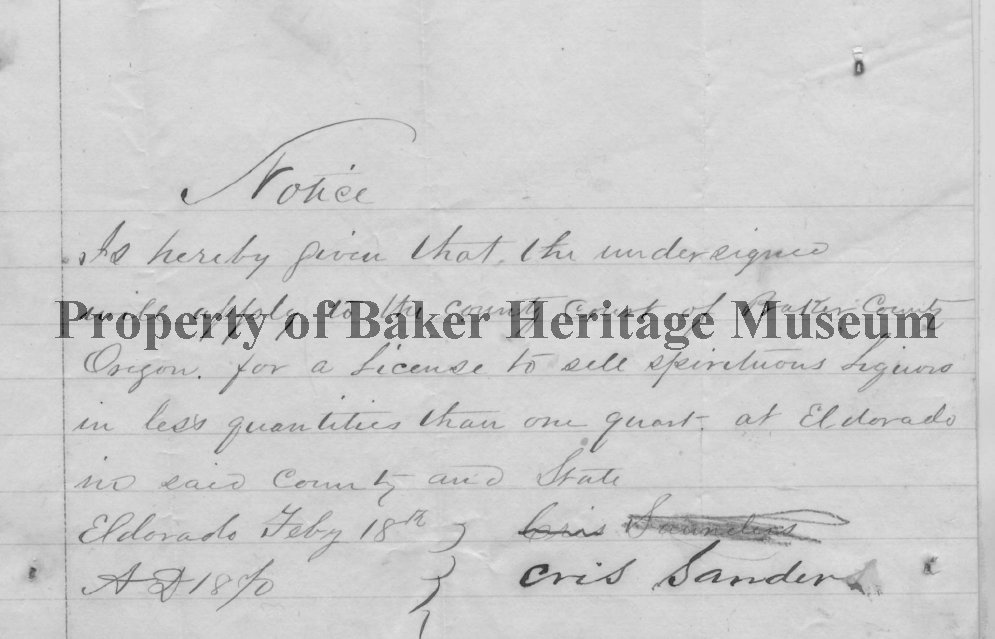 Notice
Is hereby given that the undersigned
will apply to the county court of Baker County
Property of Baker Heritage Museum
Oregon. for a License to sell spirituous Liquors
in less quantities than one quart. at Eldorado
in said County and State
Eldorado Feby 18th } Cris Saunders
A D 1870 } Cris Sanders